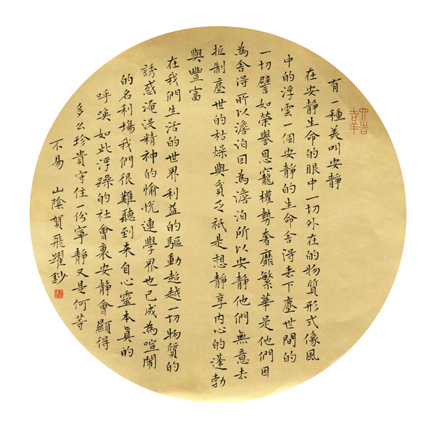 有一種美叫安靜
在安靜生命的眼中一切外在的物質形式像風
中的浮雲一個安靜的生命舍得丟下塵世間的
一切譬如榮譽恩寵權勢奢靡繁華是他們因
為舍得所以澹泊因為澹泊所以安靜他們無意去
抵制塵世的枯燥與貧乏衹是想靜享內心的蓬勃
與豐富
在我們生活的世界利益的驅動超越一切物質的
誘惑淹沒精神的愉悅連學界也已成為喧鬧
的名利場我們很難聽到來自心靈本真的
呼喚如此浮躁的社會裏安靜會顯得
多么珍貴守住一份寧靜又是何等
不易 山陰賀飛躍鈔